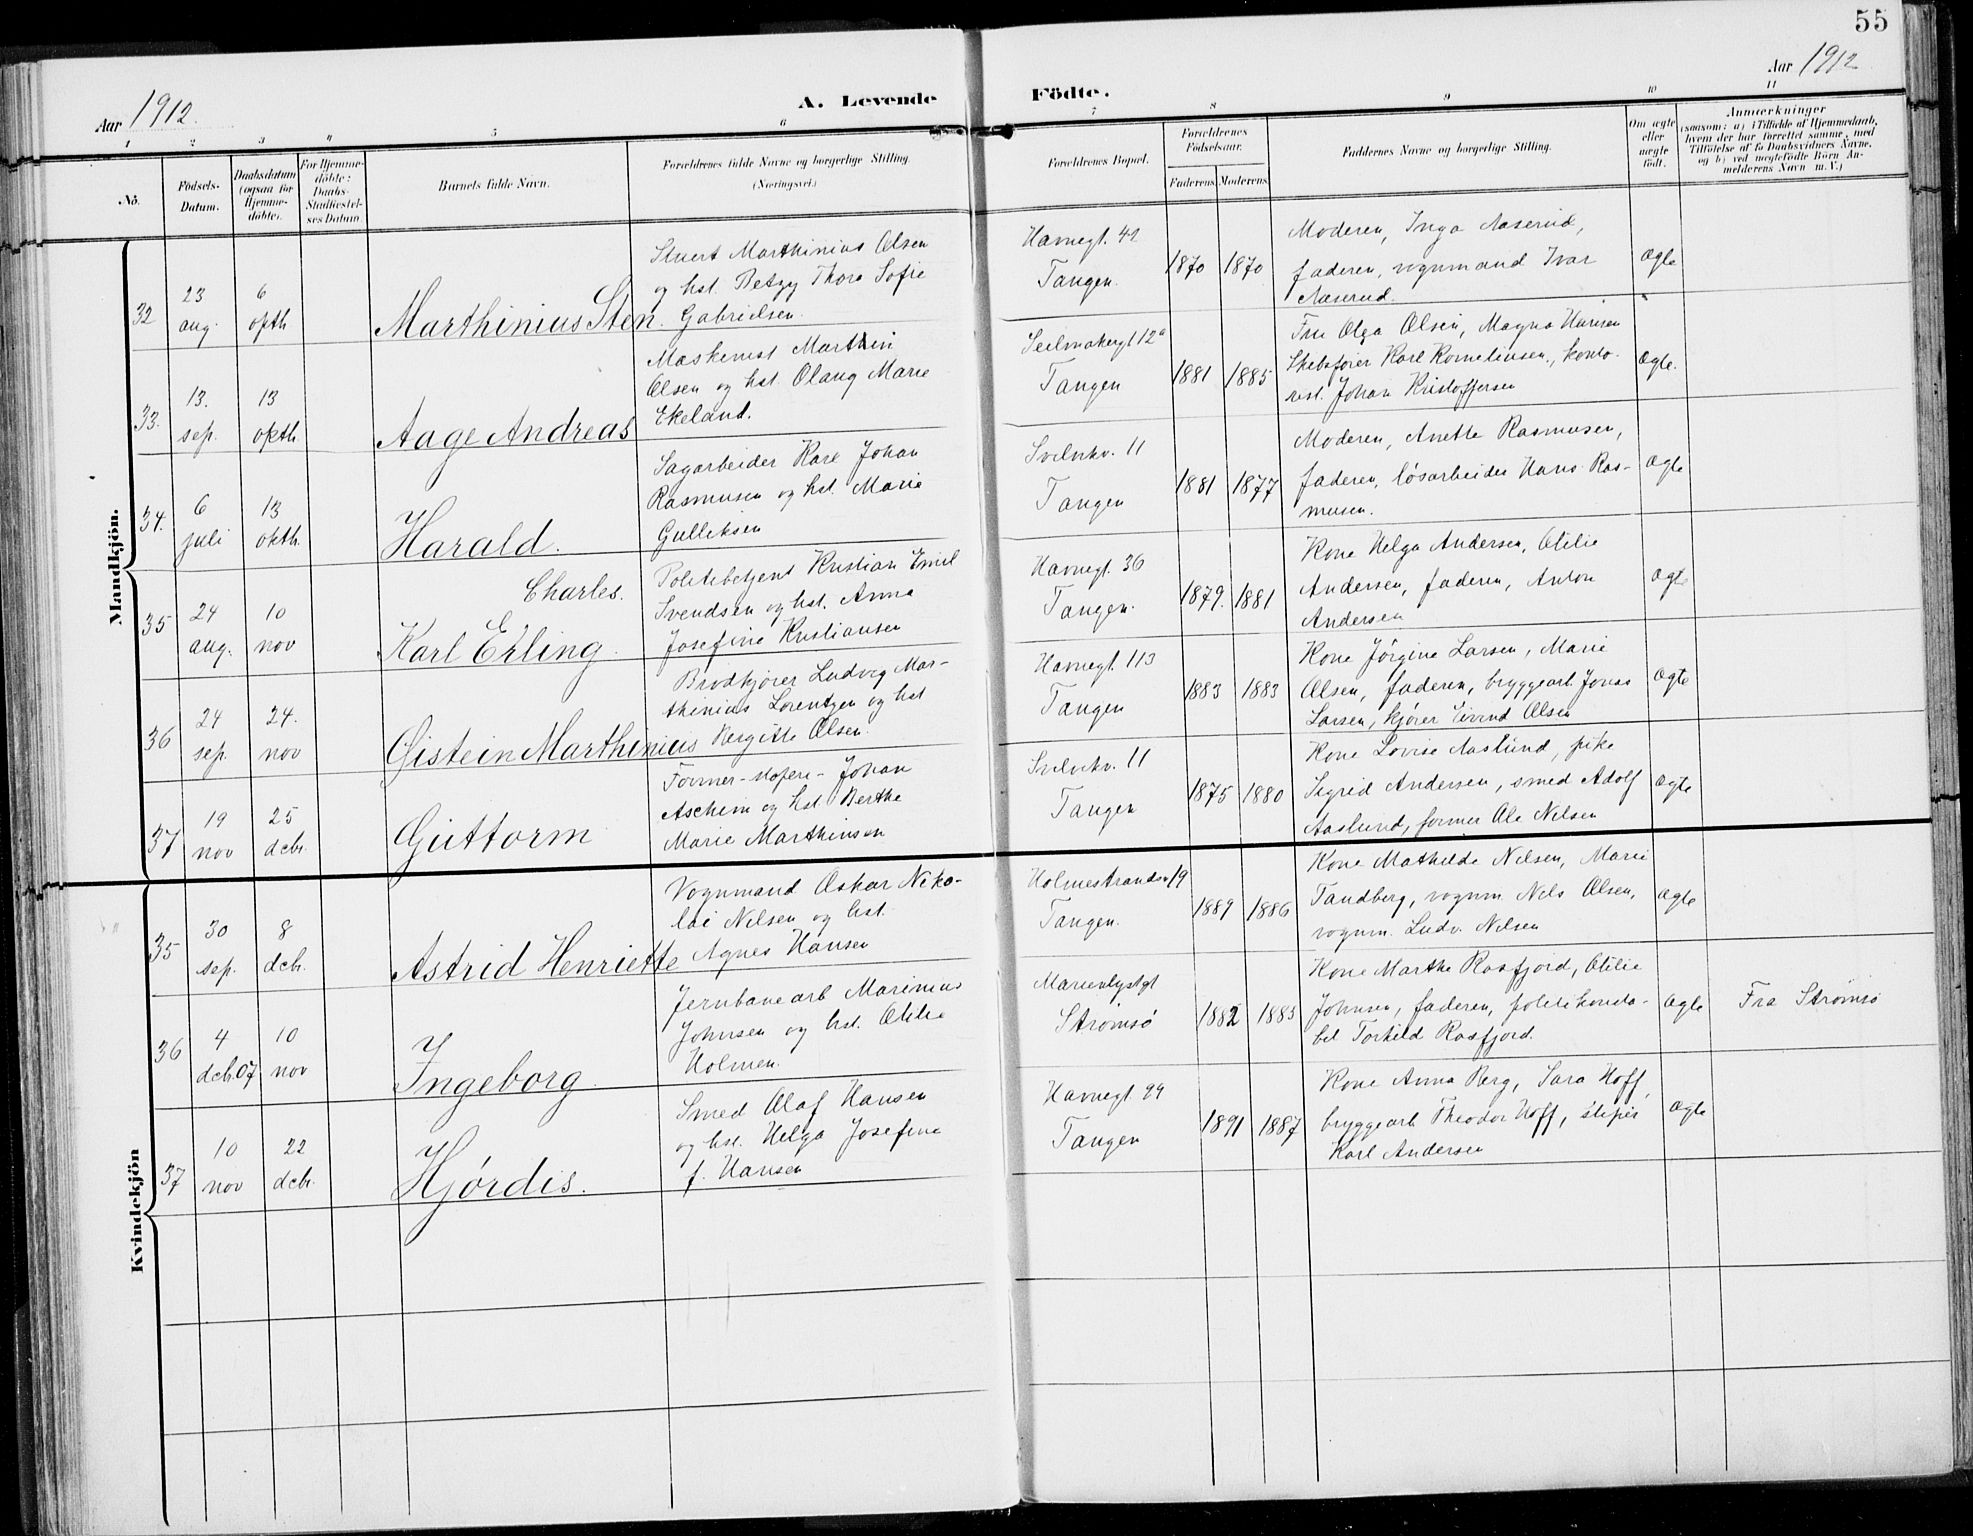 55
Aar 1912.
A. Levende Födte.
Aar 1912
1 2 3 4 5 6 7 8 9 10 11
No.
Födsels-
Datum.
Daabsdatum
(ogsaa for
Hjemme-
döbte).
For Hjemme-
döbte:
Daabs-
Stadfæstel-
ses Datum.
Barnets fulde Navn.
Forældrenes fulde Navne og borgerlige Stilling.
(Næringsvei.)
Forældrenes Bopæl.
Forældrenes
Födselsaar.
Faderens. Moderens.
Faddernes Navne og borgerlige Stilling.
Om ægte
eller
uægte
født.
Anmærkninger
(saasom: a) i Tilfælde af Hjemmedaab,
hvem der har forrettet samme, med
Tilföielse af to Daabsvidners Navne.
og b) ved uægtefödte Börn An-
melderens Navn m. V.)
Mandkjön.
32
23
aug.
6
okth
Marthinius Sten.
Stuert Marthinius Olsen
og hst. Betzy Thora Sofie
Gabrielsen.
Havnegt. 42
Tangen.
1870 1870
Moderen, Inga Naserud,
faderen, vognmand Ivar
Naserud.
Ægte
33.
13.
sep.
13
okth.
Aage Andreas
Maskinist Marthin
Olsen og hst. Olaug Marie
Ekeland.
Seilmakergt 12a
Tangen
1881 1885
Fru Olga Olsen, Magna Hansen
Skibsfører Karl Kornelinsen, konto-
rist. Johan Kristoffersen
Ægte.
34.
6
juli
13
okth.
Harald.
Sagarbeider Kare Johan
Rasmusen og hst. Marie
Gulliksen
Svelvikv. 11
Tangen
1881 1877
Moderen, Anette Rasmusen,
faderen, løsarbeider Hans Ras-
musen.
Ægte
35
24
aug.
10
nov
Charles.
Karl Erling.
Politibetjent Kristian Emil
Svendsen og hst. Anna
Josefine Kristiansen
Havnegt. 36
Tangen.
1879. 1881
Kone Helga Andersen, Otilie
Andersen, faderen, Anton
Andersen
Ægte
36
24
sep.
24.
nov
Gistein Marthinius
Brødkjører Ludvig Mar-
thinius Lorentzen og hst
Bergitte Olsen.
Havnegt. 113
Tangen
1883 1883
Kone Jørgine Larsen, Marie
Olsen, faderen, bryggearb. Jonas
Larsen, kjører Eivind Olsen
Ægte
37
19
nov
25
decbr.
Guttorm
Former-støperi- Johan
Aschim og hst Berthe
Marie Marthinsen
Svelvikv. 11
Tangen
1875 1880
Kone Lovise Aaslund, pike
Sigrid Andersen, smed Adolf
Aaslund, former Ole Nilsen
Ægte
Kvindekjön
35
30
sep.
8
decbr.
Astrid Henriette
Vognmand Oskar Niko-
lai Nilsen og hst.
Agnes Hansen
Holmestrandsv 19
Tangen.
1889 1886
Kone Mathilde Nilsen, Marie
Tandberg, vognm. Nils Olsen,
vognm. Ludv. Nilsen
Ægte
36
4
dcb.07
10
nov
Ingeborg
Jernbanearb Marinius
Johnsen og hst. Otilie
Holmen.
Marienlystgt
Strømsø
1882 1883
Kone Marthe Rosfjord, Otilie
Johnsen, faderen, politikonsta-
bel Torkild Rosfjord.
Ægte
Fra Strømsø
37
10
nov
22
dcbr.
Hjørdis.
Smed Olaf Hansen
og hst. Helga Josefine
f. Hansen
Havnegt. 99
Tangen
1891 1887
Kone Anna Berg, Sara Hoff,
bryggearb Theodor Hoff, sliper
Karl Andersen
Ægte